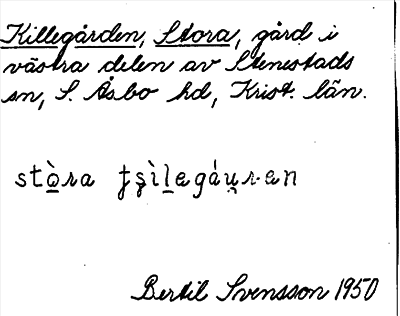 Killegården, Stora, gård i
västra delen av Stenestads
sn, S. Åsbo hd, Krist. län.
stò̲ra ʈʂìl̲egáu̯r-en
Bertil Svensson 1950